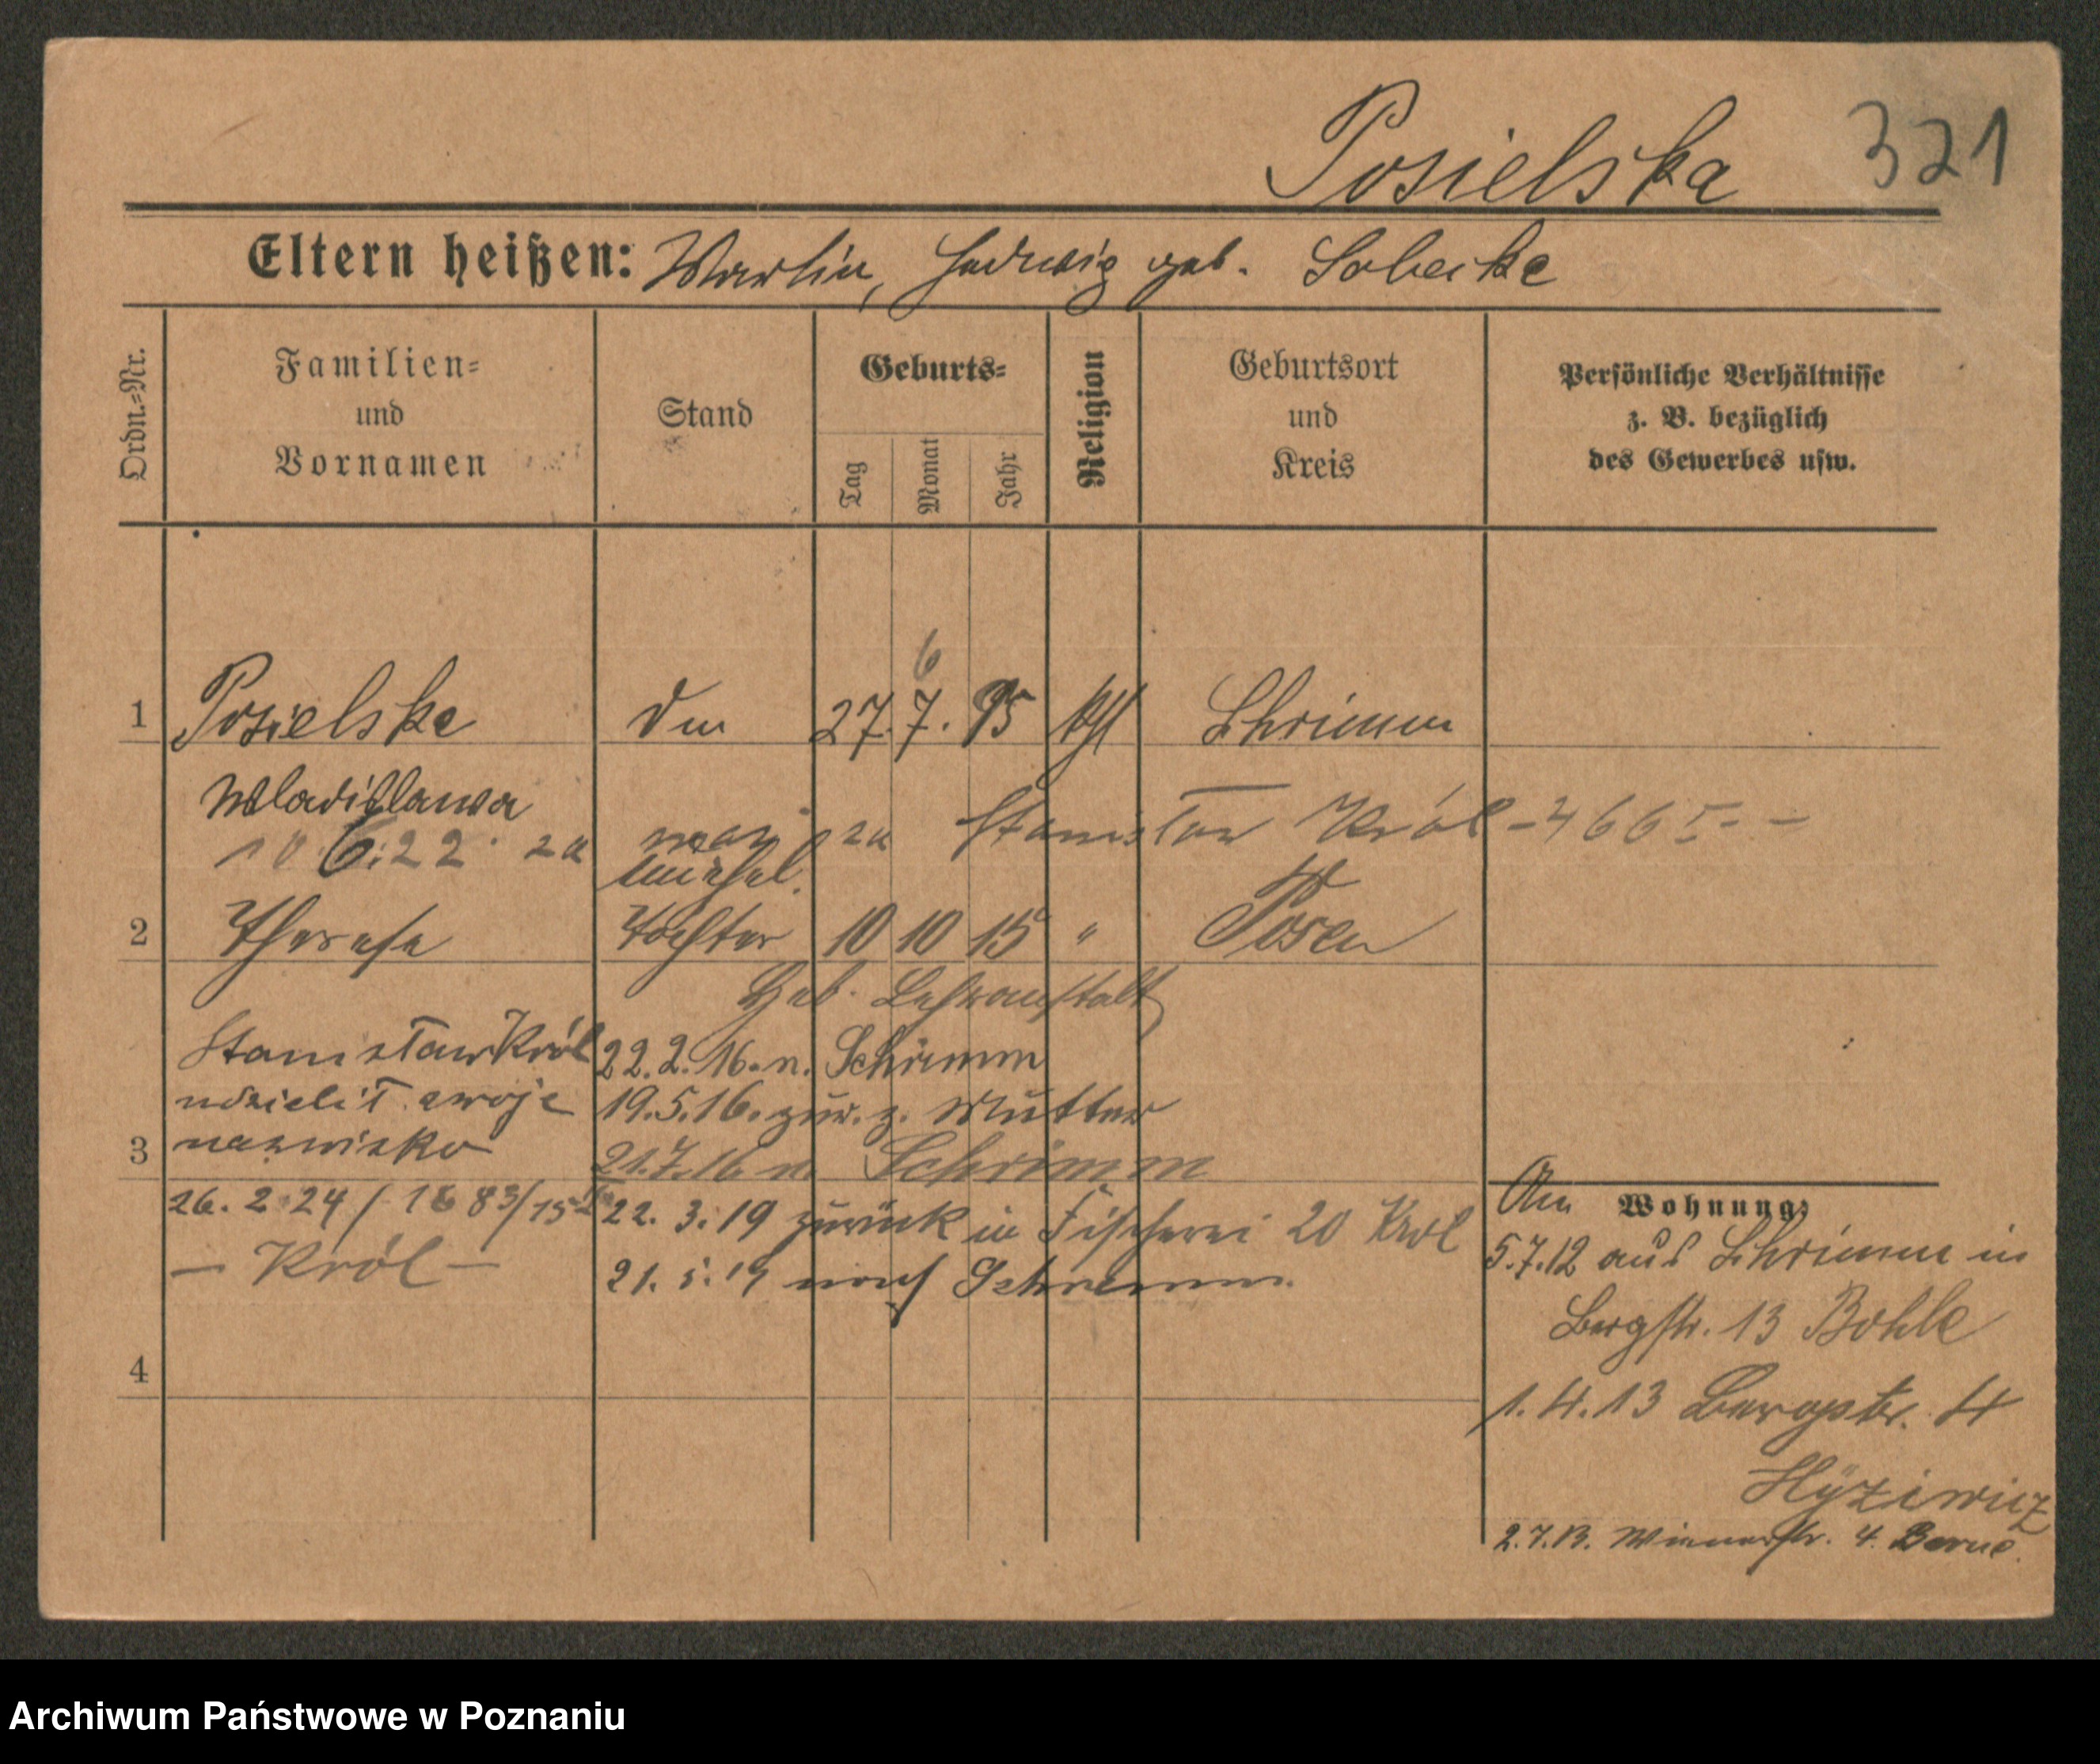 Posielska 321
Eltern heißen: Martin, Hedwig geb. Sobecka
Ordn.=Nr.
Familien=
und
Vornamen
Stand
Geburts=
Tag
Monat
Jahr
Religion
Geburtsort
und
Kreis
Persönliche Verhältnisse
z. B. bezüglich
des Gewerbes usw.
6
1 Posielska 27. 7. 95 kth Schrimm
Wladislawa
10.6.22 za mąż za Stanisław Król - 4665 - -
unehel.
2 Therese Tochter 10 10 15 " Posen
Heb. Lehranstalt
Stanisław Król 22.2.16. n. Schrimm
udzielił swoje 19.5.16. zur. z. Mutter
3 nazwisko 21.7.16 n. Schrimm
26. 2 24 / 1683/15 22. 3. 19 zurück in Fischerei 20 Krol
— Król — 21. 5. 19 nach Schrimm
4
An Wohnung:
5.7.12 aus Schrimm in
Bergstr. 13 Bohle
1. 4. 13 Bergstr. 4
2.7.13. Wienerstr. 4.
Archiwum Państwowe w Poznaniu